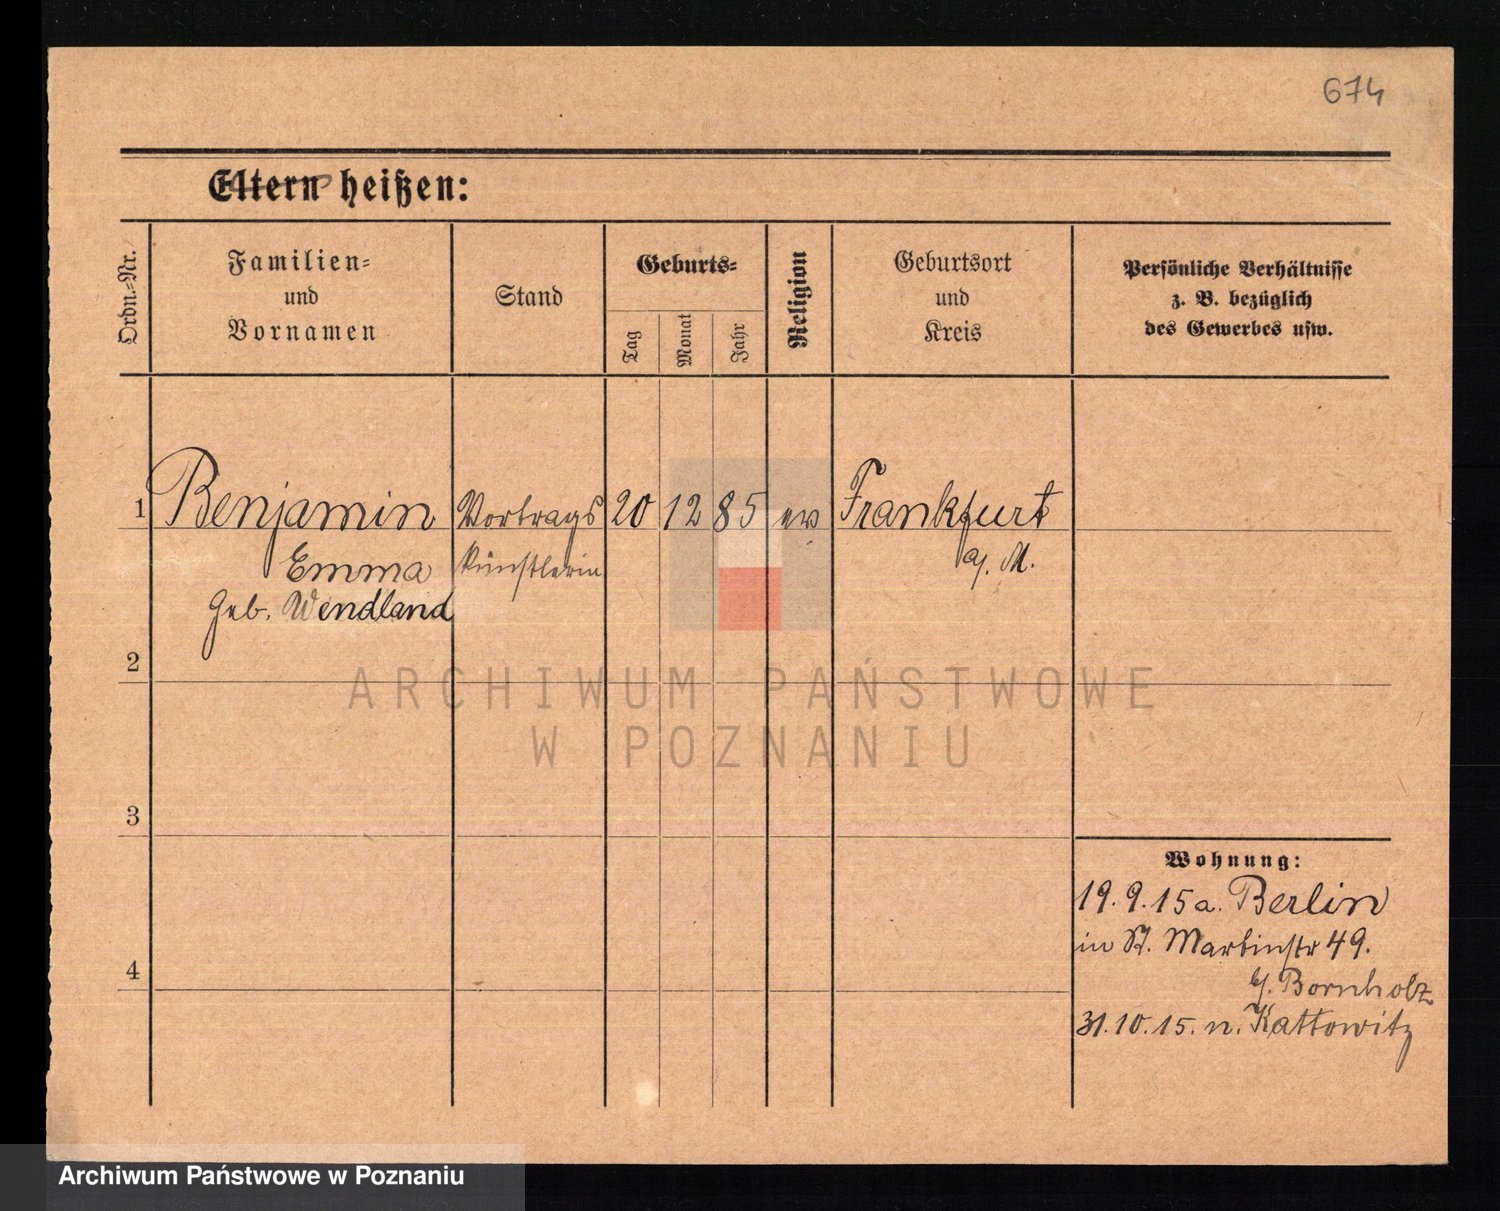 674
Eltern heißen:
Ordn.-Nr.
Familien-
und
Vornamen
Stand
Geburts-
Tag
Monat
Jahr
Religion
Geburtsort
und
Kreis
Persönliche Verhältnisse
z. B. bezüglich
des Gewerbes usw.
1 Benjamin Vortrags 20 12 85 ev Frankfurt
Emma künstlerin a/. M.
geb. Wendland
2
ARCHIWUM PAŃSTWOWE
W POZNANIU
3
Wohnung:
19.9.15 a. Berlin
in St. Martinstr 49.
b/. Bornholz
4
31.10.15. n. Kattowitz
Archiwum Państwowe w Poznaniu